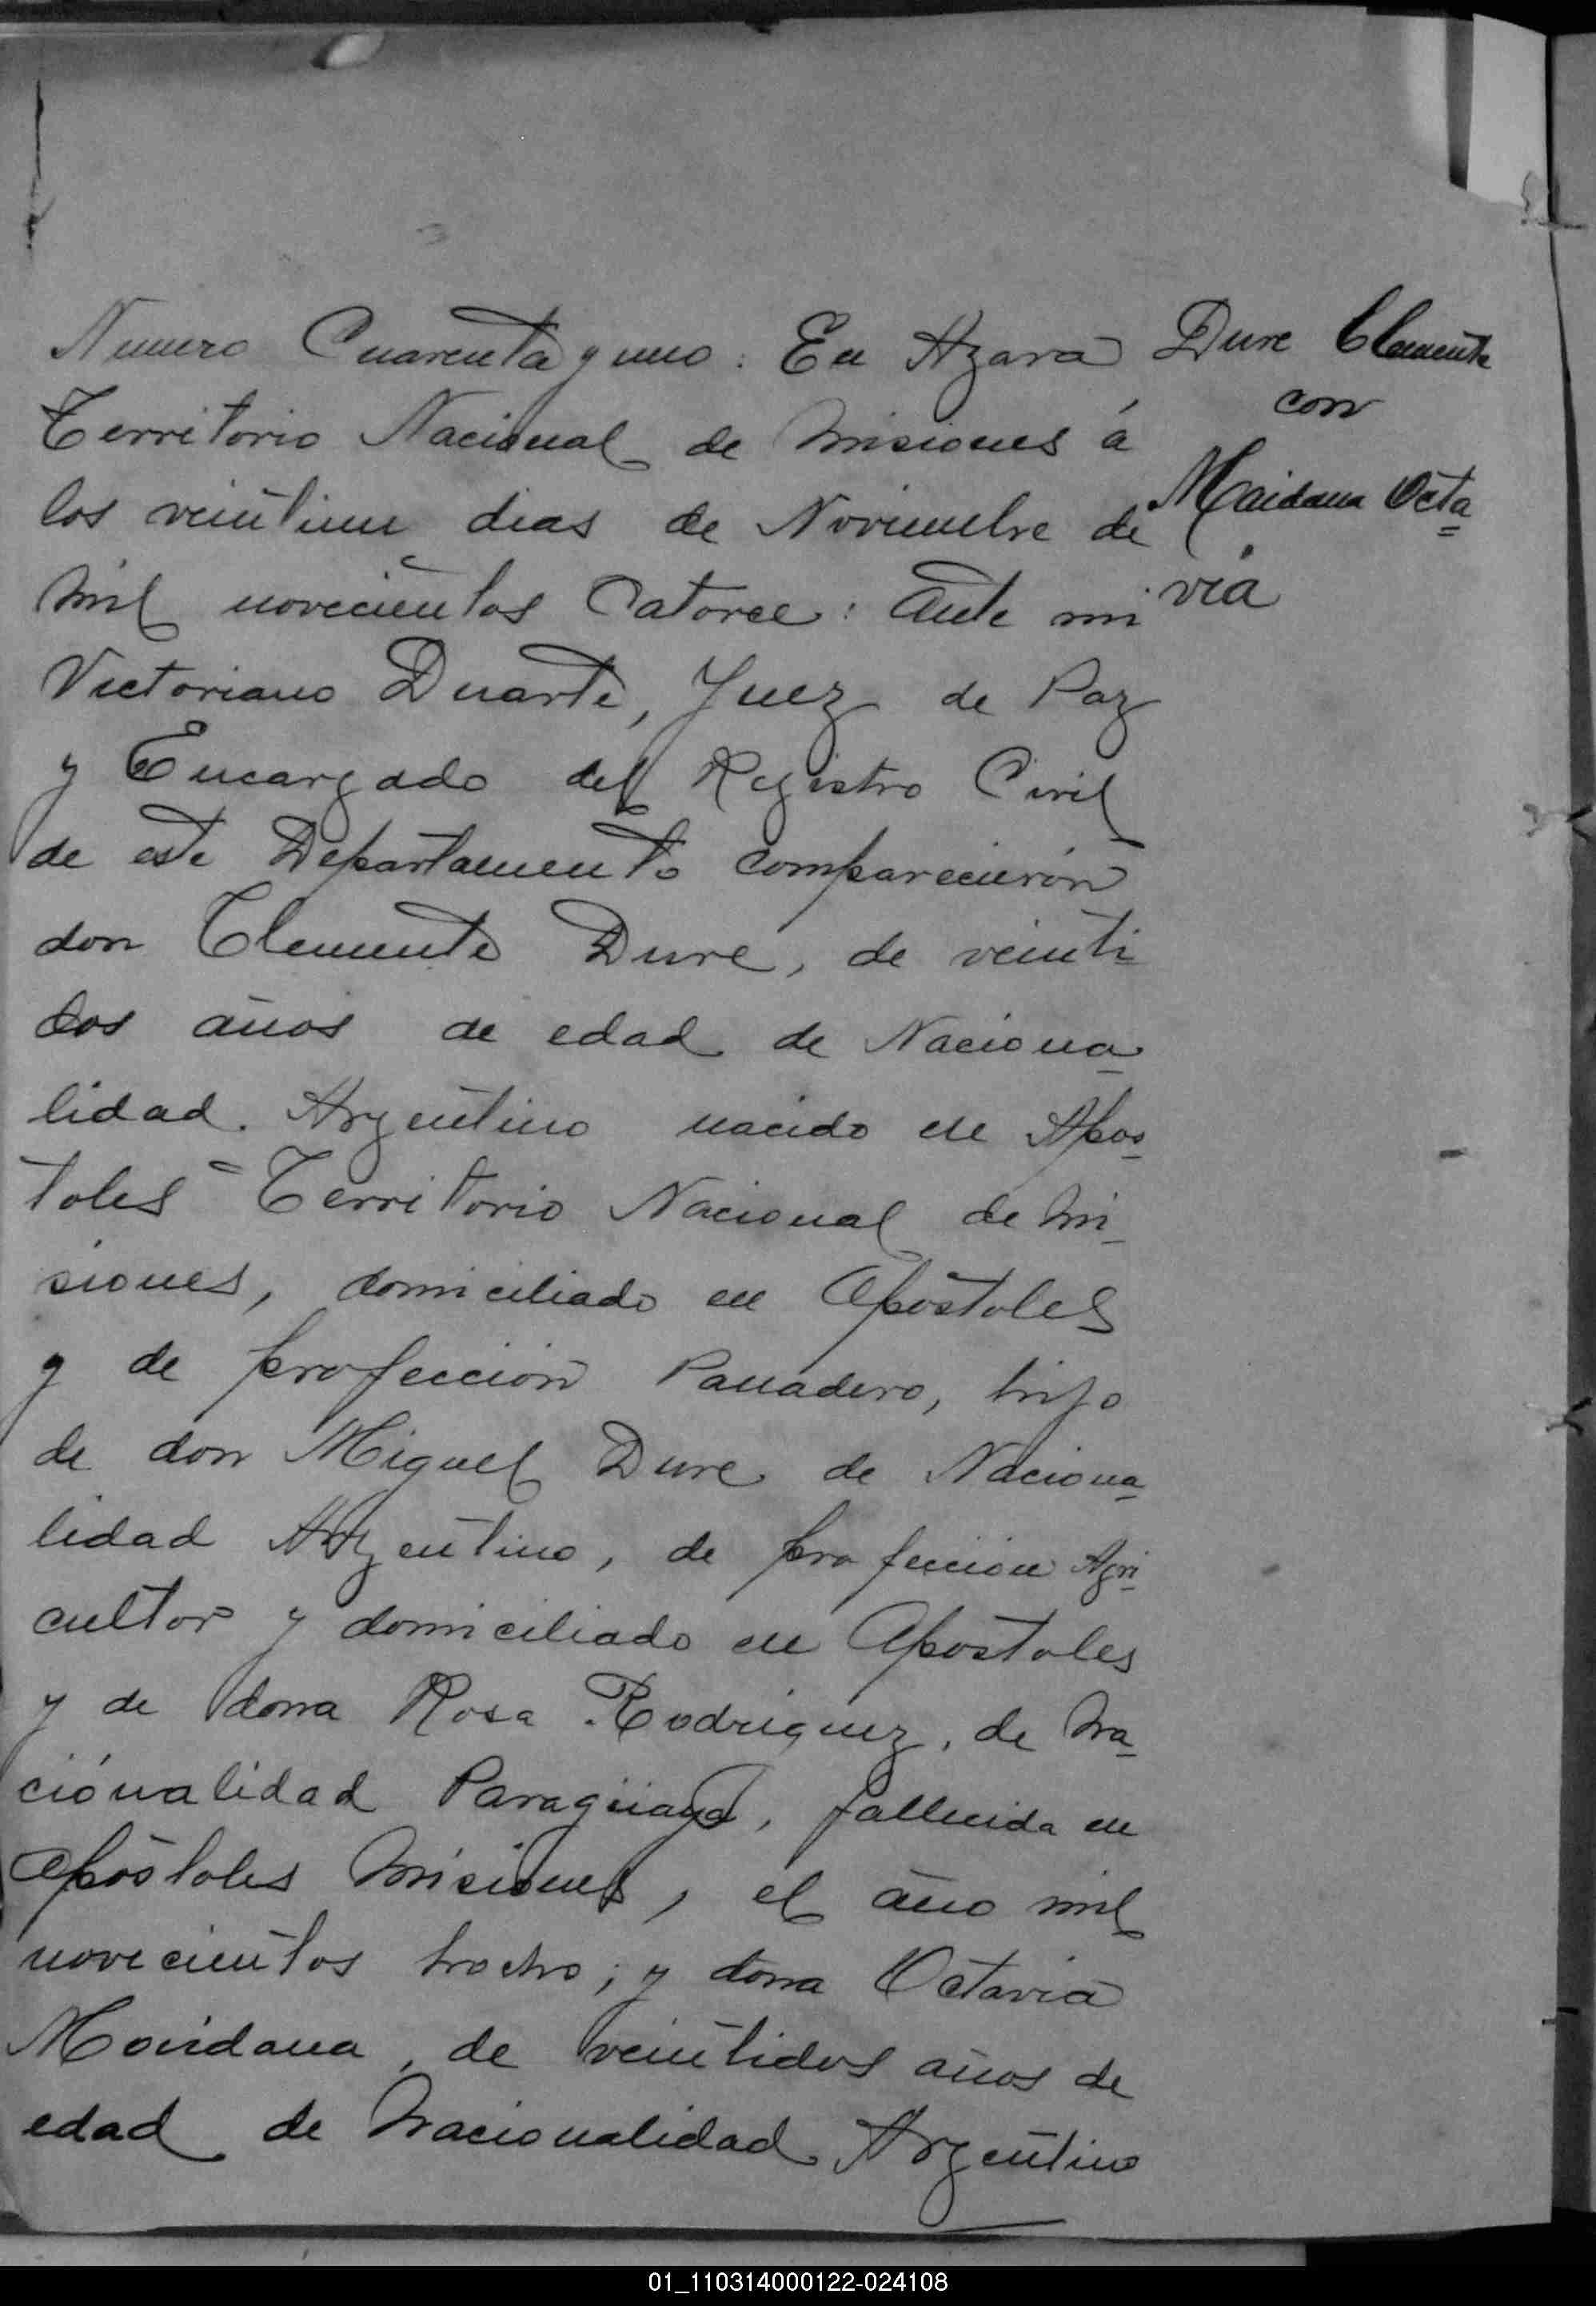 Numero Cuarenta y uno: En Azara
Territorio Nacional de Misiones á
los veintiun dias de Noviembre de
mil novecientos Catorce: Ante mi
Victoriano Duarte, Juez de Paz
y Encargado del Registro Civil
de este Departamento comparecierón
don Clemente Dure, de veinti-
dos años de edad de Naciona-
lidad. Argentino nacido en Apos-
toles Territorio Nacional de Mi-
siones, domiciliado en Apostoles
y de profección Panadero, hijo
de don Miguel Dure de Naciona-
lidad Argentino, de profeccion Agri-
cultor y domiciliado en Apostoles
y de dona Rosa Rodriguez, de na-
cionalidad Paragüaya, fallecida en
Apóstoles Misiones, el año mil
novecientos hocho; y dona Octavia
Maidana, de veintidos años de
edad de nacionalidad Argentino
Dure Clemente
con
Maidana Octa=
via
01_110314000122-024108